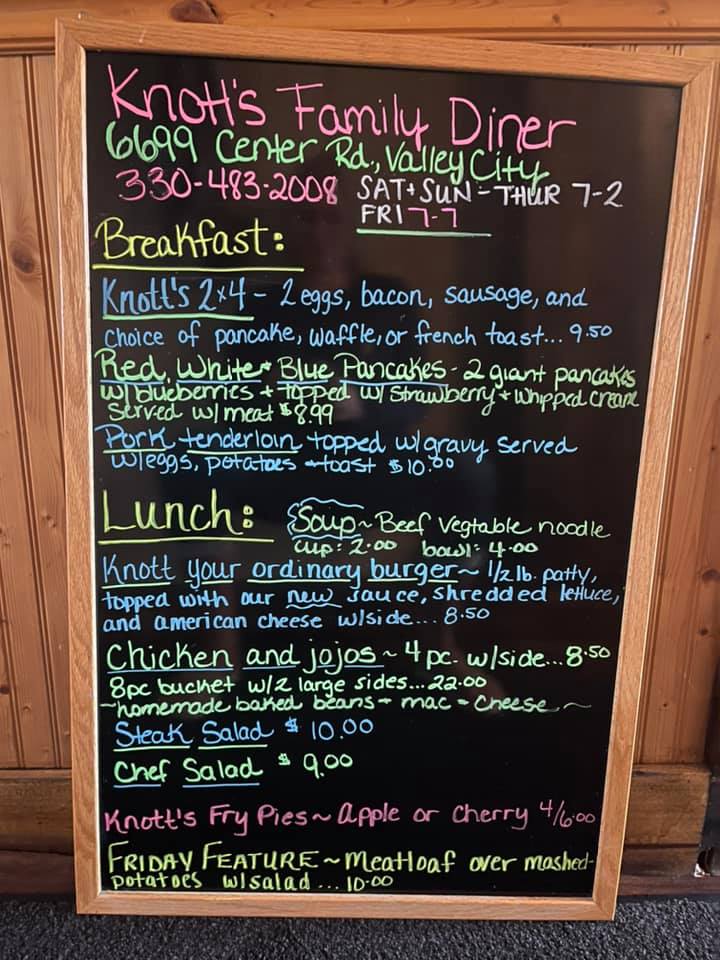 Knott's Family Diner
6699 Center Rd., Valley City
330-483-2008 SAT + SUN - THUR 7-2
FRI 7-7
Breakfast:
Knott's 2x4 - 2 eggs, bacon, sausage, and
choice of pancake, waffle, or french toast... 9.50
Red, White + Blue Pancakes - 2 giant pancakes
w/ blueberries + topped w/ strawberry + whipped cream
served w/ meat $8.99
Pork tenderloin topped w/ gravy served
w/ eggs, potatoes + toast $10.00
Lunch: Soup ~ Beef Vegtable noodle
cup: 2.00 bowl: 4.00
Knott your ordinary burger ~ 1/2 lb. patty,
topped with our new sauce, shredded lettuce,
and american cheese w/side... 8.50
Chicken and jojos ~ 4 pc. w/side... 8.50
8pc bucket w/2 large sides... 22.00
~ homemade baked beans + mac - n - Cheese ~
Steak Salad $10.00
Chef Salad $9.00
Knott's Fry Pies ~ Apple or Cherry 4/6.00
FRIDAY FEATURE ~ Meatloaf over mashed-
potatoes w/salad ... 10.00